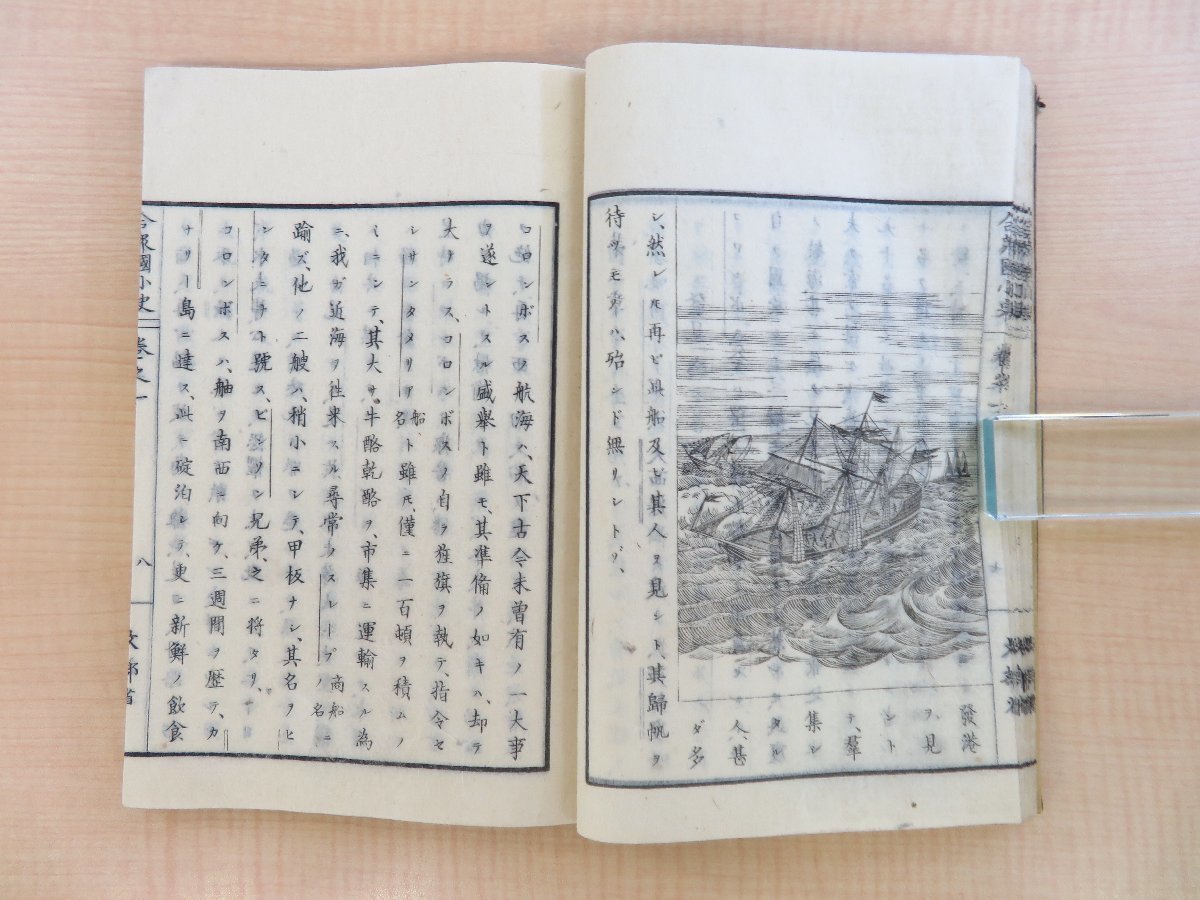 發港
ヲ、見
ント
テ、羣
集シ
タル
人、甚
ダ多
シ、然レ𪜈再ビ此船及ビ其人ヲ見シト、其歸帆ヲ
待ツモ來ハ、殆ンド無リシトゾ、
コロンボスノ航海ハ、天下古今未曾有ノ一大事
ヲ遂ントスル盛擧ト雖モ、其準備ノ如キハ、却テ
大ナラス、コロンボスノ自ラ旌旗ヲ執テ、指令セ
シサンタメリア船名ト雖𪜈、僅ニ一百頓ヲ積ムノ
ミニシテ、其大サ牛酪乾酪ヲ、市集ニ運輸スル為
ニ、我ガ近海ヲ往来スル、尋常ノスループ商船ノ名ニ
踰ズ、他ノ二艘ハ、稍小ニシテ、甲板ナシ、其名ヲピ
ンタニナト號ス、ピンゾン兄弟、之ニ将タリ、
コロンボスハ、舳ヲ南西ニ向ケ、三週間ヲ歴テ、カ
ナリー島ニ達ス、此ニ碇泊シテ、更ニ新鮮ノ飲食
合衆國小史 卷之一 八 文部省